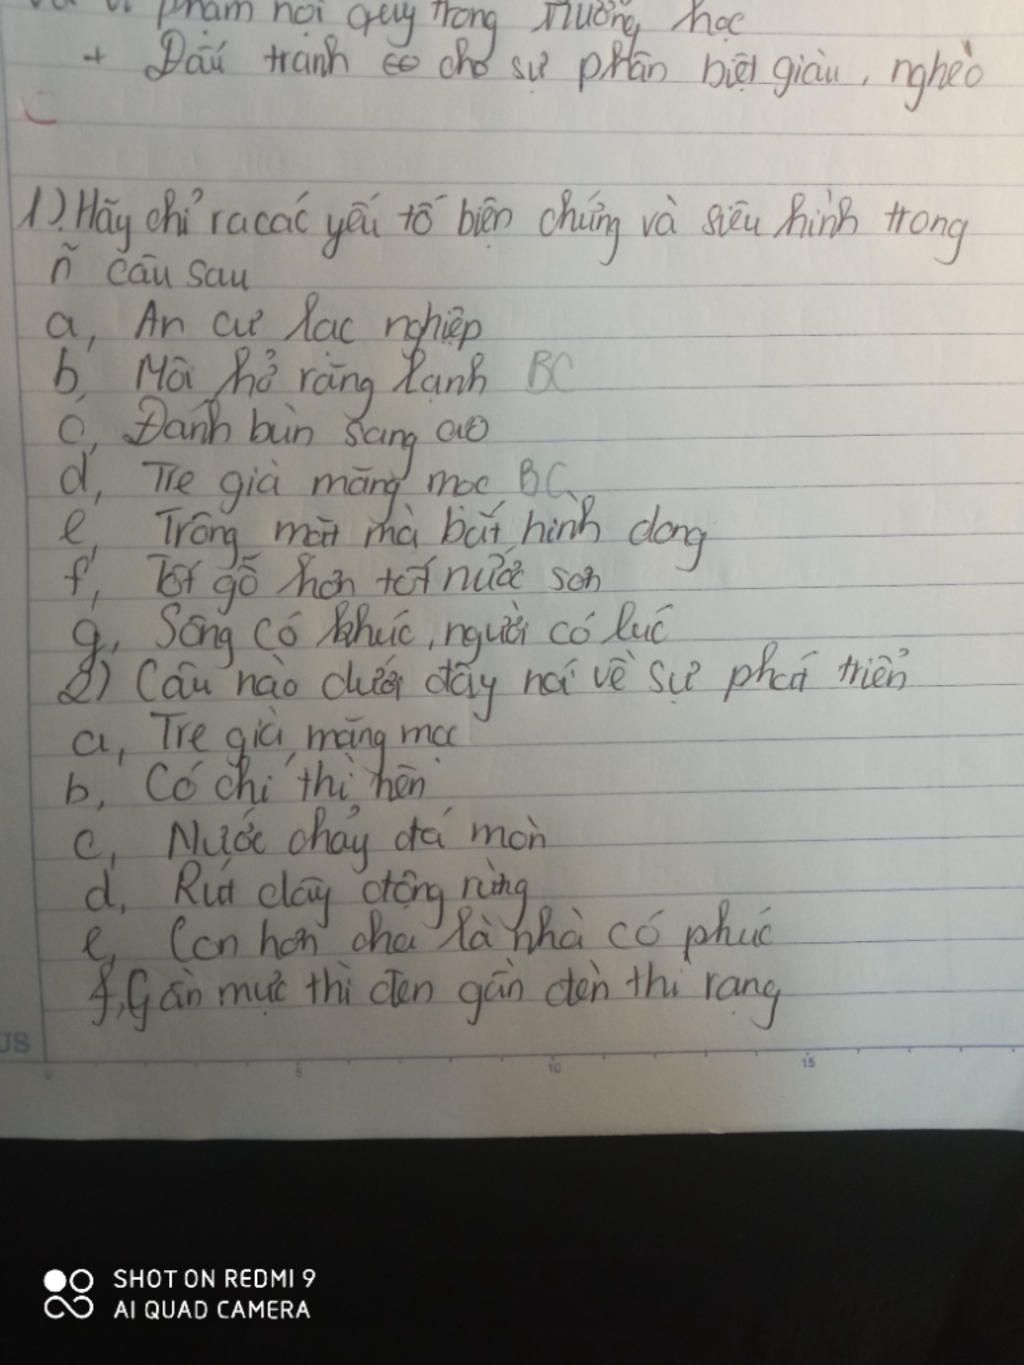 phạm nội quy trong trường học
+ Đấu tranh cho sự phân biệt giàu, nghèo
1) Hãy chỉ ra các yếu tố biện chứng và siêu hình trong
ñ câu sau
a, An cư lạc nghiệp
b, Môi hở răng lạnh BC
c, Đánh bùn sang ao
d, Tre già măng mọc BC
e, Trông mặt mà bắt hình dong
f, Tốt gỗ hơn tốt nước sơn
g, Sông có khúc, người có lúc
2) Câu nào dưới đây nói về sự phát triển
a, Tre già măng mọc
b, Có chí thì nên
c, Nước chảy đá mòn
d, Rút dây động rừng
e, Con hơn cha là nhà có phúc
f, Gần mực thì đen gần đèn thì rạng
JS
0 5 10 15
SHOT ON REDMI 9
AI QUAD CAMERA